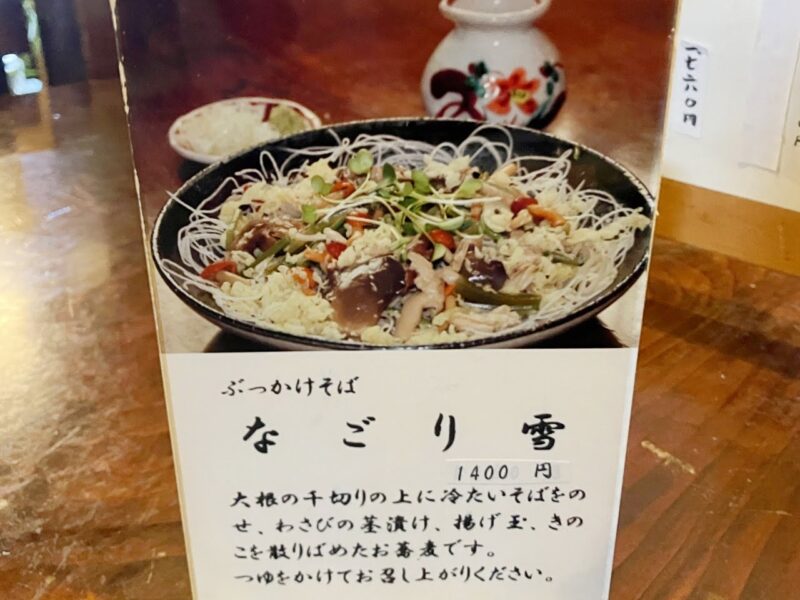 ぶっかけそば
なごり雪
1400 円
大根の千切りの上に冷たいそばをの
せ、わさびの茎漬け、揚げ玉、きの
こを散りばめたお蕎麦です。
つゆをかけてお召し上がりください。